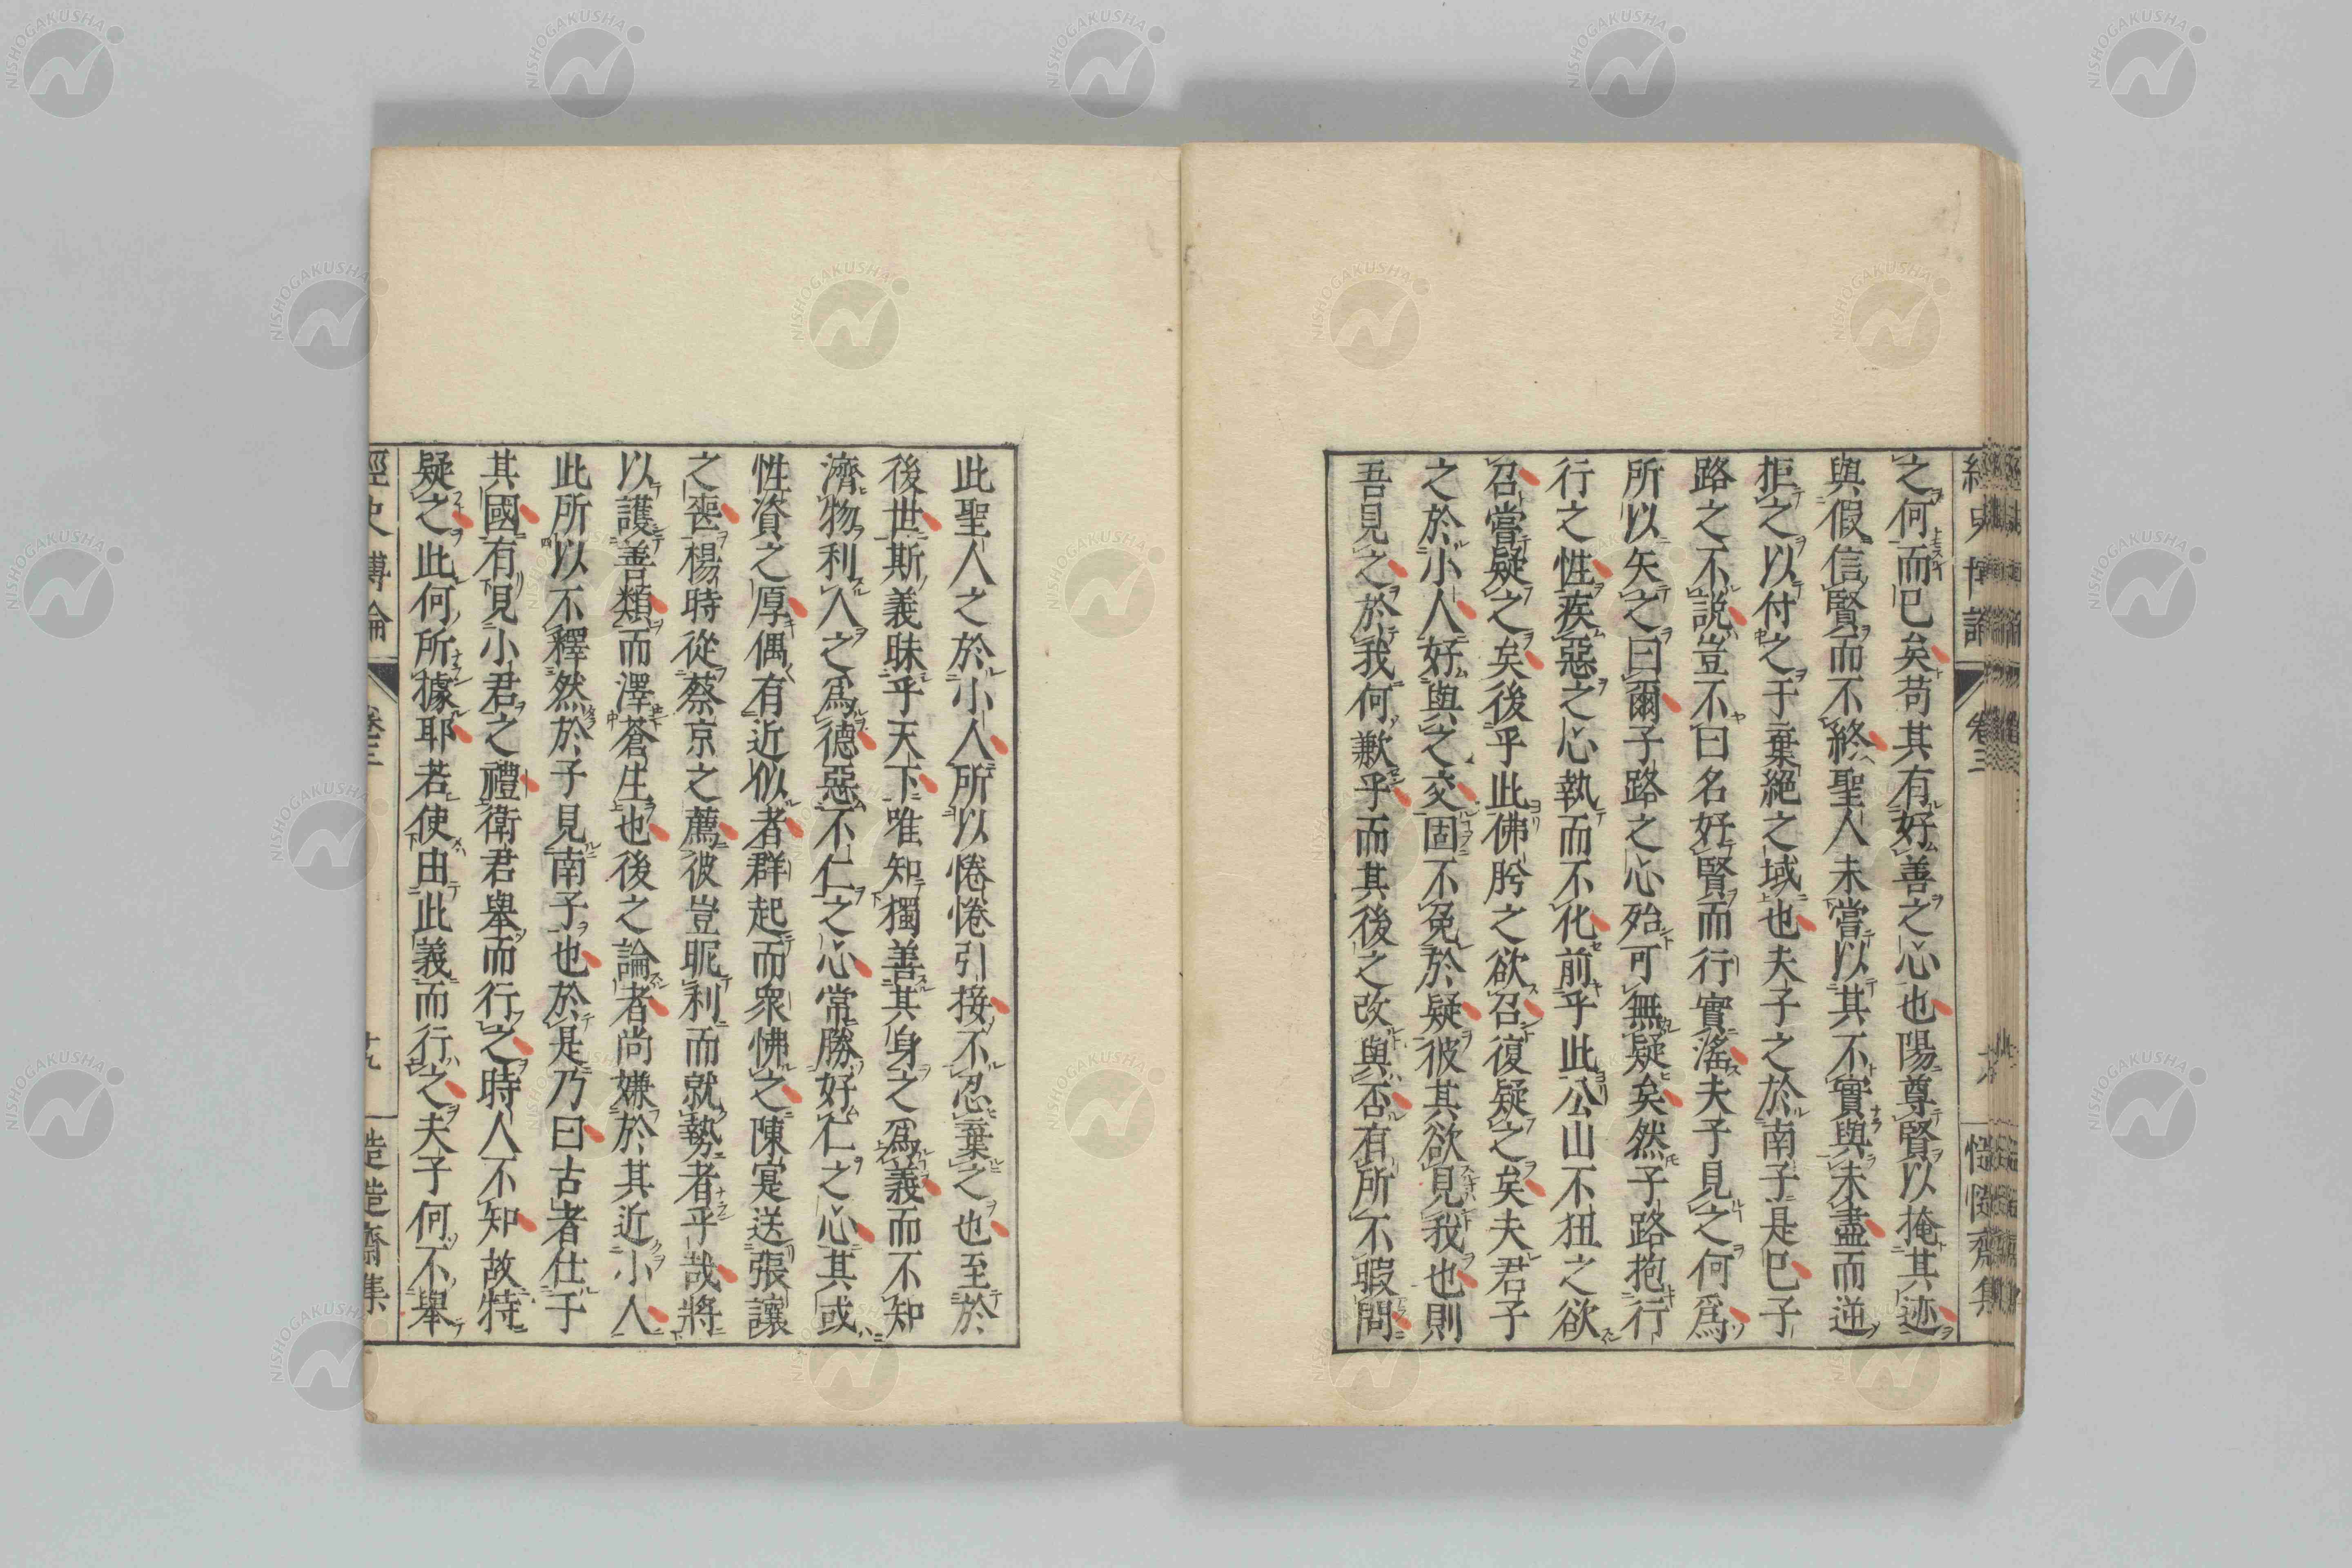 之何而已矣苟其有好善之心也陽尊賢以掩其迹
與假信賢而不終聖人未嘗以其不實與未盡而逆
拒之以付之于棄絕之域也夫子之於南子是已子
路之不說豈不曰名好賢而行實淫夫子見之何爲
所以矢之曰爾子路之心殆可無疑矣然子路抱行
行之性疾惡之心執而不化前乎此公山不狃之欲
召嘗疑之矣後乎此佛肸之欲召復疑之矣夫君子
之於小人好與之交固不免於疑彼其欲見我也則
吾見之於我何歉乎而其後之改與否有所不暇問
此聖人之於小人所以惓惓引接不忍棄之也至於
後世斯義昧乎天下唯知獨善其身之爲義而不知
濟物利人之爲德惡不仁之心常勝好仁之心其或
性資之厚偶有近似者群起而衆怫之陳寔送張讓
之喪楊時從蔡京之薦彼豈昵利而就勢者乎哉將
以護善類而澤蒼生也後之論者尚嫌於其近小人
此所以不釋然於子見南子也於是乃曰古者仕于
其國有見小君之禮衛君舉而行之時人不知故特
疑之此何所據耶若使由此義而行之夫子何不舉
經史博論
卷三
十九
慥慥齋集
NISHOGAKUSHA